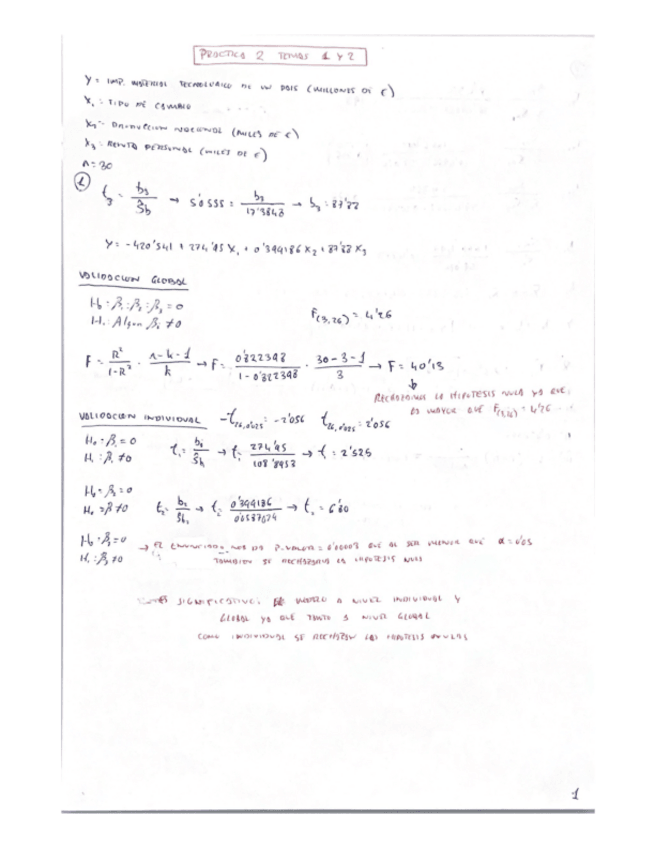 PRACTICA 2 TEMAS 1 Y 2
Y = IMP. MATERIAL TECNOLOGICO DE UN PAIS (MILLONES DE €)
X₁ = TIPO DE CAMBIO
X₂ = PRODUCCION NACIONAL (MILES DE €)
X₃ = RENTA PERSONAL (MILES DE €)
n = 30
1 t₃ = b₃ / Sb → 5'0555 = b₃ / 17'3843 → b₃ = 87'88
Y = -420'541 + 274'95 X₁ + 0'399186 X₂ + 87'88 X₃
VALIDACION GLOBAL
H₀ = β₁ = β₂ = β₃ = 0
H₁ = Algun βⱼ ≠ 0
F(3,26) = 4'26
F = R² / 1-R² · n-k-1 / k → F = 0'822398 / 1-0'822398 · 30-3-1 / 3 → F = 40'13
RECHAZAMOS LA HIPOTESIS NULA YA QUE
ES MAYOR QUE F(3,26) = 4'26
VALIDACION INDIVIDUAL -t26,0'025 = -2'056 t26,0'025 = 2'056
H₀ = β₁ = 0
H₁ = β₁ ≠ 0
t₁ = b₁ / Sb → t₁ = 274'95 / 108'8953 → t = 2'525
H₀ = β₂ = 0
H₁ = β ≠ 0
t₂ = b₂ / Sb₂ → t₂ = 0'399186 / 0'0587074 → t₂ = 6'80
H₀ = β₃ = 0
H₁ = β₃ ≠ 0
→ EL ENUNCIADO NOS DA P-VALOR = 0'00003 QUE AL SER MENOR QUE α = 0'05
TAMBIEN SE RECHAZARIA LA HIPOTESIS NULA
SIGNIFICATIVO EL MODELO A NIVEL INDIVIDUAL Y
GLOBAL YA QUE TANTO A NIVEL GLOBAL
COMO INDIVIDUAL SE RECHAZAN LAS HIPOTESIS NULAS
1